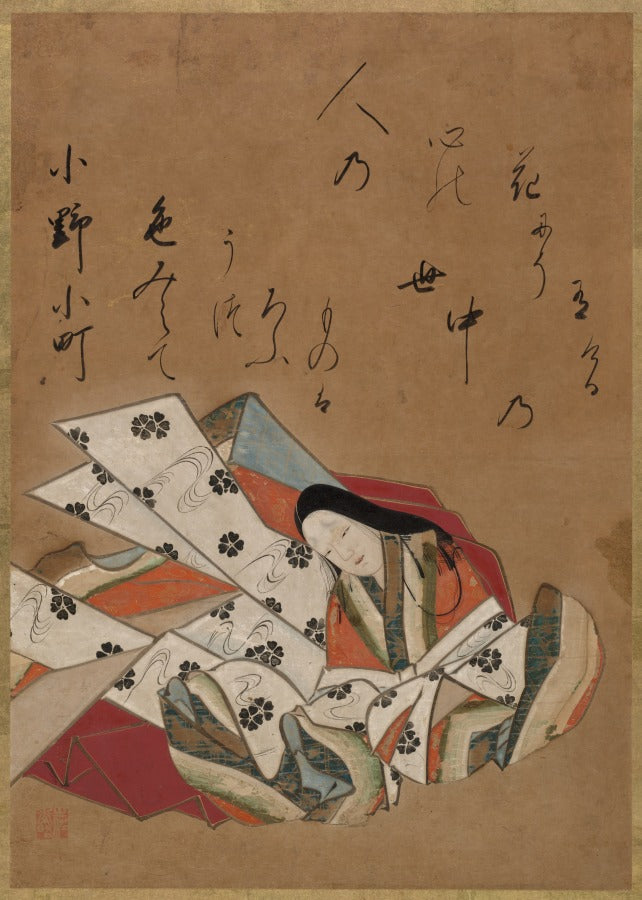 小野小町
色みえて
うつ
ろふ
ものは
世
中
乃
人乃
心の
花にそ
有ける